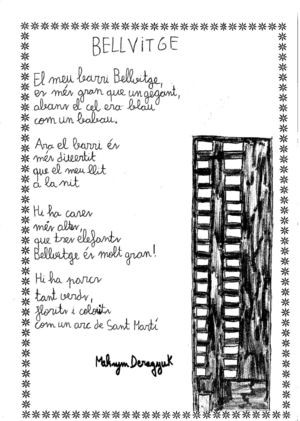 BELLVITGE
El meu barri Bellvitge,
es més gran que un gegant,
abans el cel era blau
com un babau.
Ara el barri és
més divertit
que el meu llit
a la nit
Hi ha cases
més altes,
que tres elefants
Bellvitge és molt gran!
Hi ha parcs
tant verds,
florits i colorits
com un arc de Sant Martí
Maksym Deragyuk